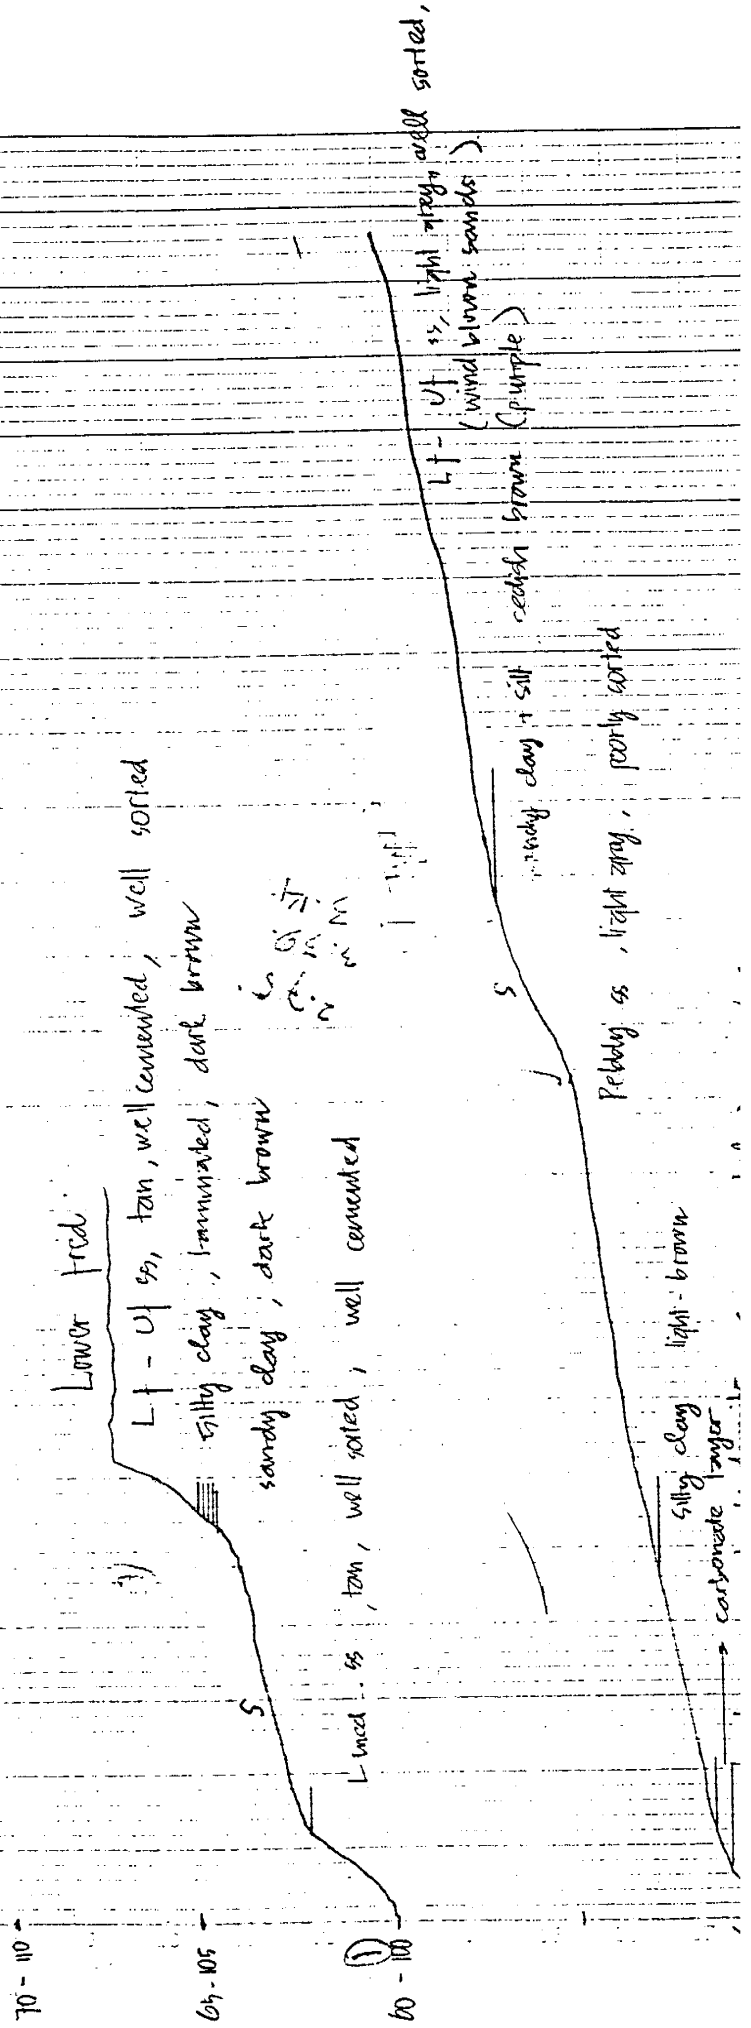 70 - 110
Lower Fred.
Lf - Uf ss, tan, well cemented, well sorted
silty clay, laminated, dark brown
65 - 105
sandy clay, dark brown
L med. ss, tan, well sorted, well cemented
S
60 - 100
1
Lf - Uf ss, light grey, well sorted,
(wind blown sands)
sandy clay + silt redish brown (purple)
S
Pebbly ss, light gray, poorly sorted
silty clay light-brown
carbonate layer